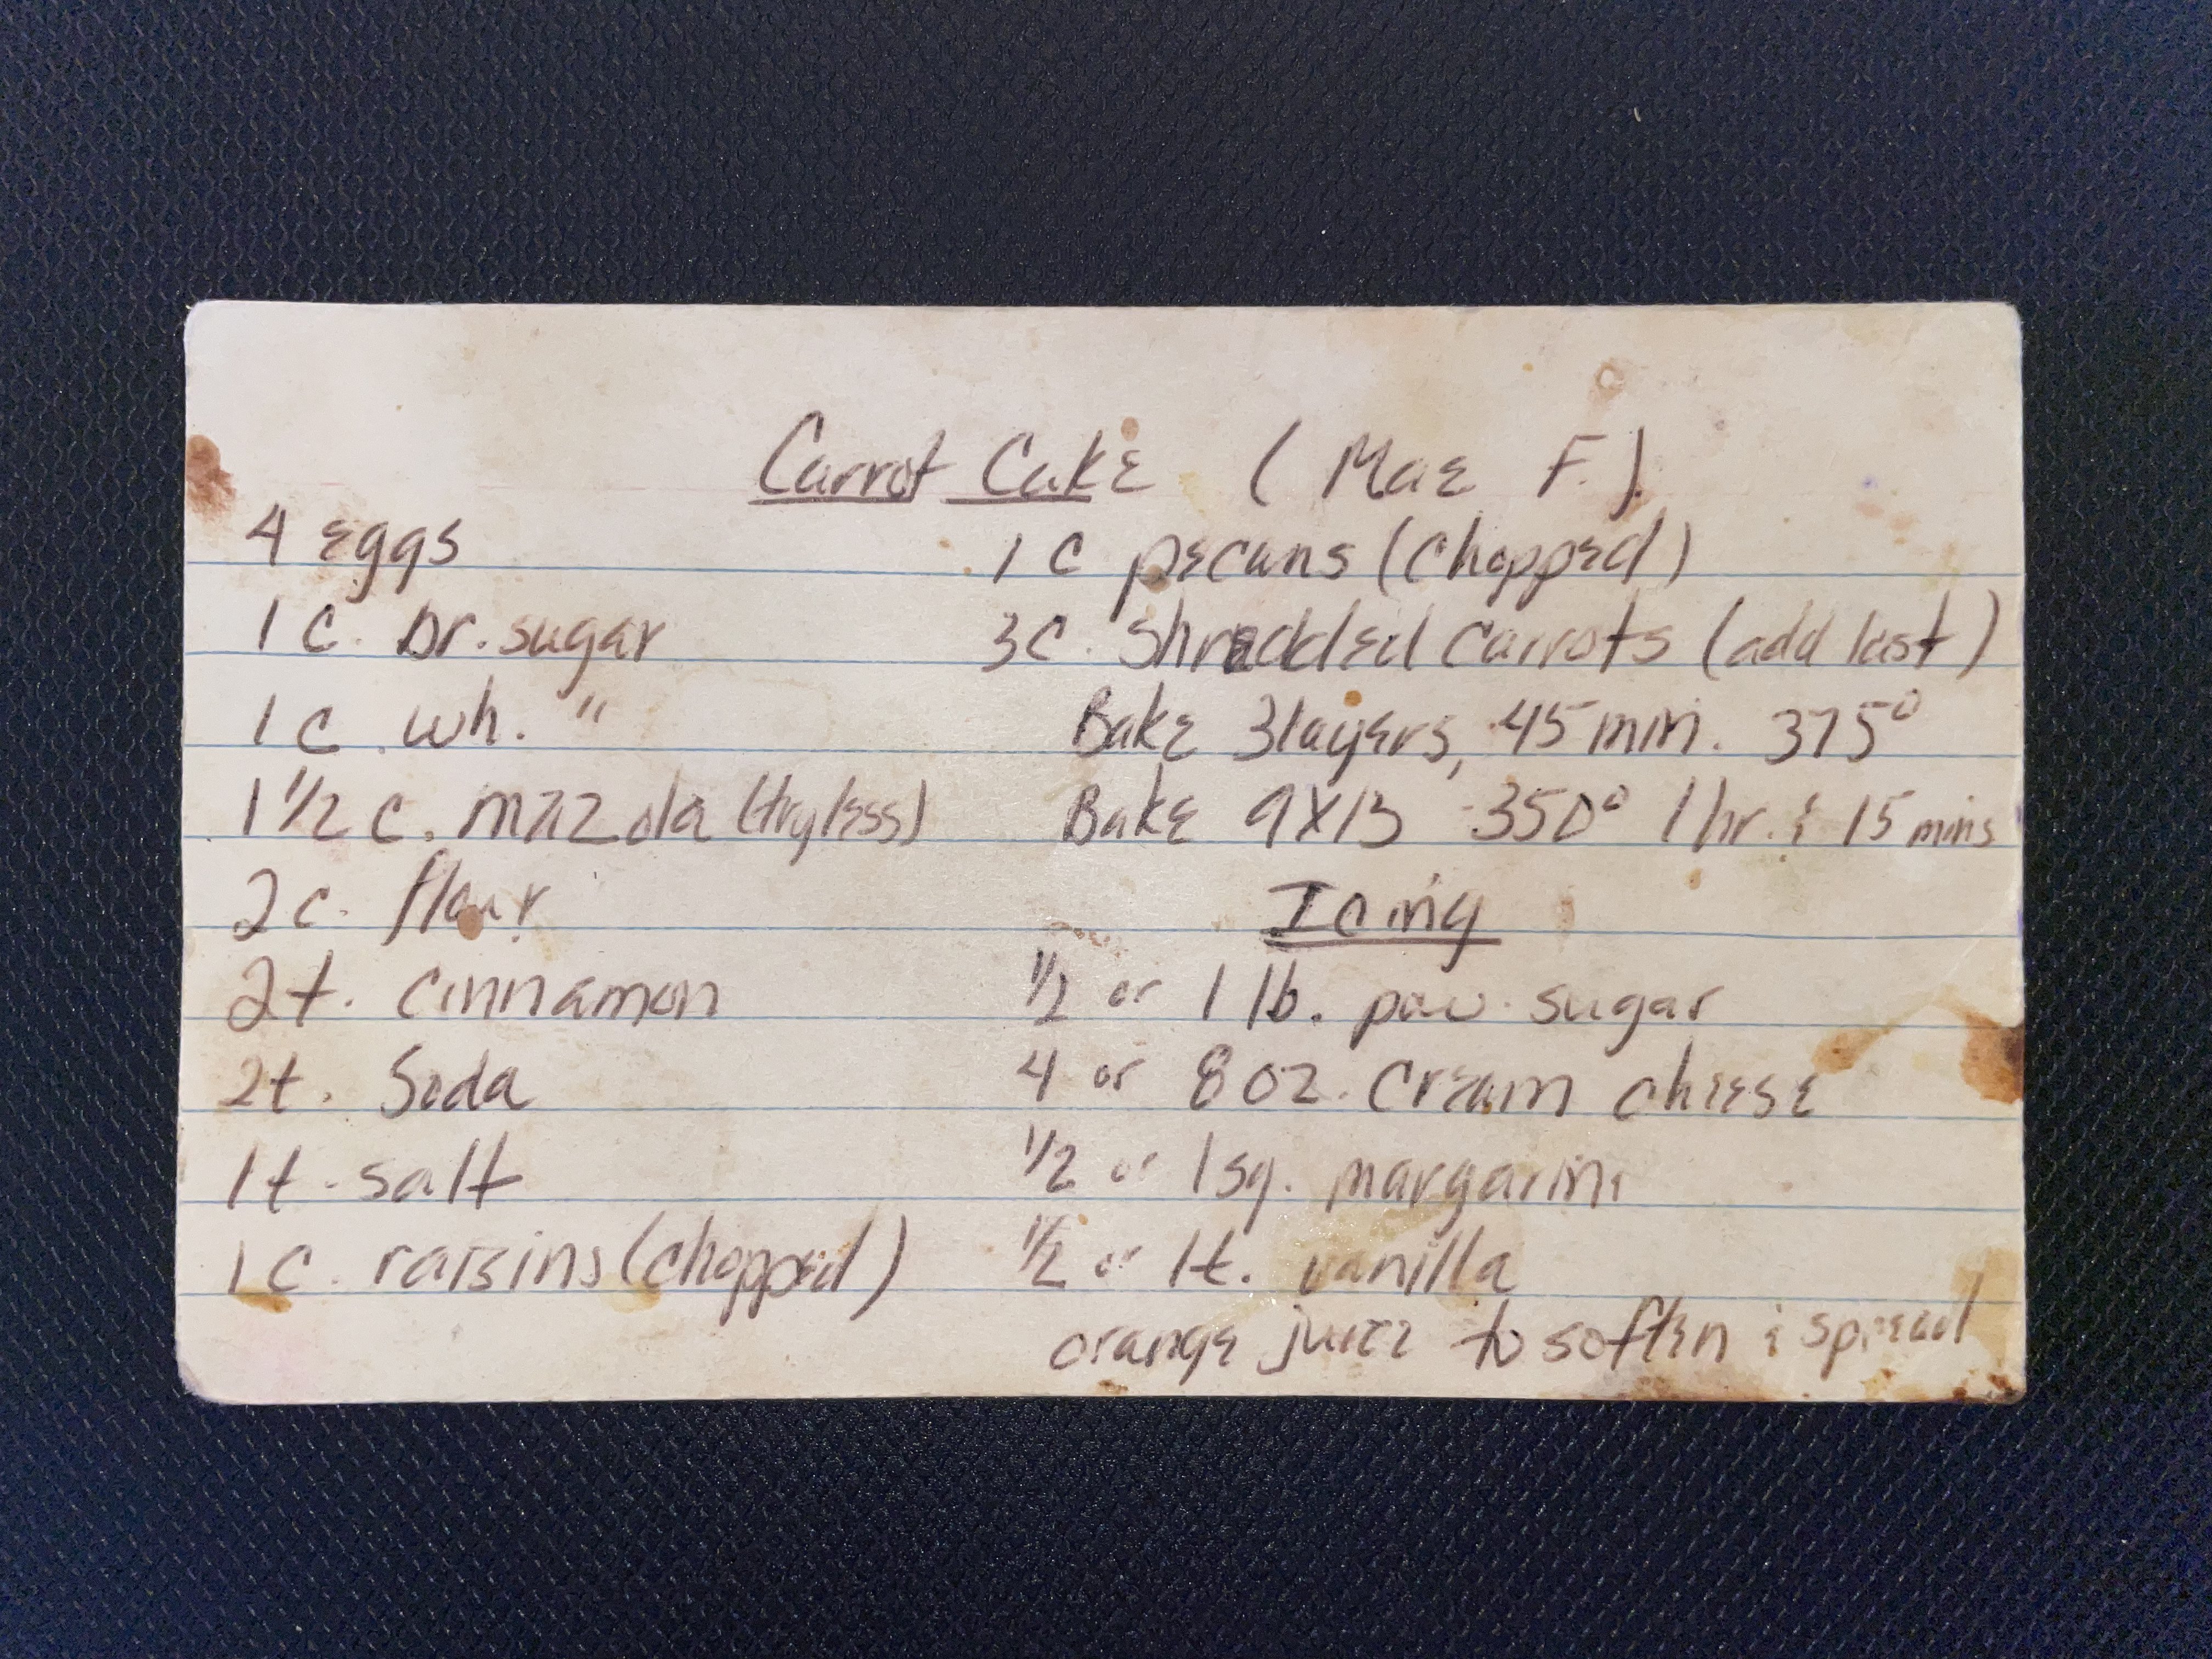 Carrot Cake (Mae F.)
4 eggs
1 c. Br. sugar
1 c. wh. "
1 1/2 c. mazola (try less)
2 c. flour
2 t. cinnamon
2 t. Soda
1 t. salt
1 c. raisins (chopped)
1 c pecans (chopped)
3 c. shredded carrots (add last)
Bake 3 layers, 45 min. 375°
Bake 9X13 350° 1 hr. & 15 mins
Icing
1/2 or 1 lb. pow. sugar
4 or 8 oz. cream cheese
1/2 or 1 sq. margarine
1/2 or 1 t. vanilla
orange juice to soften & spread